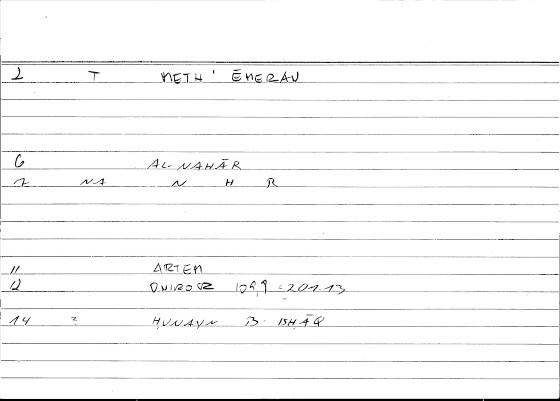 2 T METH' ĒMERAN
6 AL-NAHĀR
7 NA N H R
11 ARTEM
12 ONIROCR 109,9 = 201.13
14 2 ḤUNAYN B. ISḤĀQ